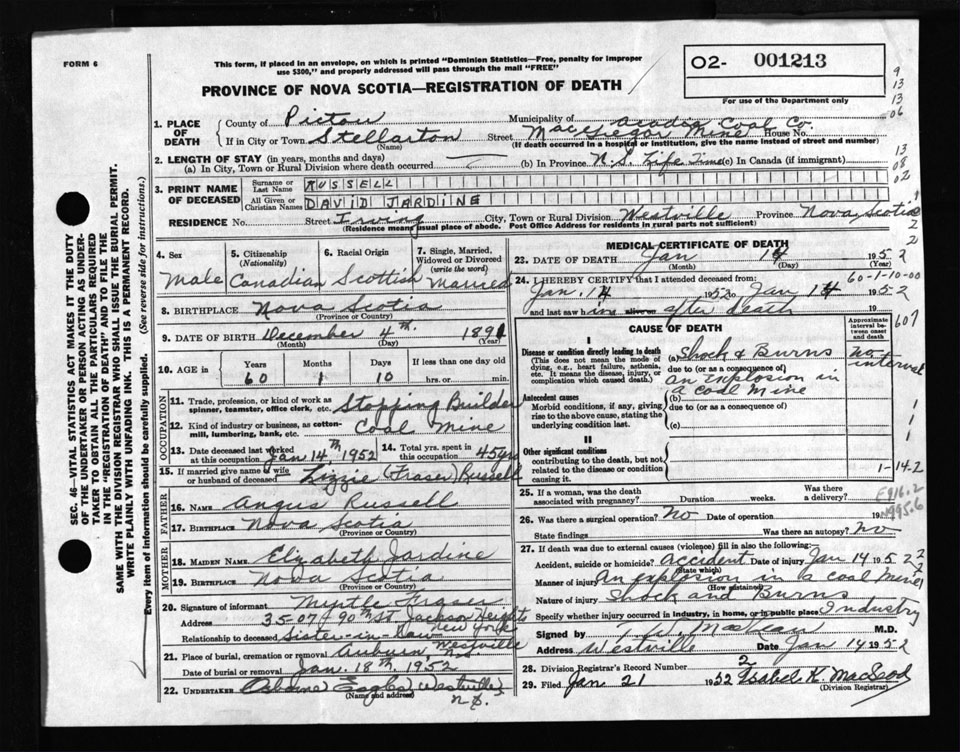 FORM 6
This form, if placed in an envelope, on which is printed "Dominion Statistics—Free, penalty for improper
use $300," and properly addressed will pass through the mail "FREE"
02- 001213
For use of the Department only
PROVINCE OF NOVA SCOTIA—REGISTRATION OF DEATH
9
13
13
06
13
08
02
1. PLACE OF DEATH
County of Pictou Municipality of Acadia Coal Co.
If in City or Town Stellarton Street MacGregor Mine House No.
(Name) (If death occurred in a hospital or institution, give the name instead of street and number)
2. LENGTH OF STAY (in years, months and days)
(a) In City, Town or Rural Division where death occurred — (b) In Province N.S. Life Time (c) In Canada (if immigrant)
3. PRINT NAME OF DECEASED
Surname or Last Name RUSSELL
All Given or Christian Names DAVID JARDINE
RESIDENCE No. Street Irving City, Town or Rural Division Westville Province Nova Scotia
(Residence means usual place of abode. Post Office Address for residents in rural parts not sufficient)
4. Sex Male
5. Citizenship (Nationality) Canadian
6. Racial Origin Scottish
7. Single, Married, Widowed or Divorced (write the word) Married
8. BIRTHPLACE Nova Scotia
(Province or Country)
9. DATE OF BIRTH December 4th. 1891
(Month) (Day) (Year)
10. AGE in Years Months Days If less than one day old
60 1 10 hrs. or min.
OCCUPATION
11. Trade, profession, or kind of work as spinner, teamster, office clerk, etc. Stopping Builder
12. Kind of industry or business, as cotton-mill, lumbering, bank, etc. Coal Mine
13. Date deceased last worked at this occupation Jan 14th 1952
14. Total yrs. spent in this occupation 45 yrs
15. If married give name of wife or husband of deceased Lizzie (Fraser) Russell
FATHER
16. NAME Angus Russell
17. BIRTHPLACE Nova Scotia
(Province or Country)
MOTHER
18. MAIDEN NAME Elizabeth Jardine
19. BIRTHPLACE Nova Scotia
(Province or Country)
20. Signature of informant Myrtle Fraser
Address 35-07-90th St. Jackson Heights New York
Relationship to deceased Sister-in-Law
21. Place of burial, cremation or removal Auburn, Westville N.S.
Date of burial or removal Jan. 18th, 1952
22. UNDERTAKER Eagles Westville,
(Name and address) N.S.
MEDICAL CERTIFICATE OF DEATH
23. DATE OF DEATH Jan 14 1952
(Month) (Day)
24. I HEREBY CERTIFY that I attended deceased from: 60-1-10-00
Jan. 14 1952 to Jan 14 1952
and last saw him alive on after death
607
CAUSE OF DEATH
Approximate interval between onset and death
I
Disease or condition directly leading to death (a) Shock & Burns no interval
(This does not mean the mode of dying, e.g., heart failure, asthenia, etc. It means the disease, injury, or complication which caused death.)
due to (or as a consequence of)
an explosion in
(b) a coal mine
Antecedent causes
Morbid conditions, if any, giving rise to the above cause, stating the underlying condition last.
due to (or as a consequence of)
(c)
1
1
II
Other significant conditions
contributing to the death, but not related to the disease or condition causing it.
1-14-2
25. If a woman, was the death associated with pregnancy? Duration weeks. Was there a delivery?
E916.2
N995.6
26. Was there surgical operation? no Date of operation 19
State findings Was there an autopsy? no
27. If death was due to external causes (violence) fill in also the following:
Accident, suicide or homicide? accident Date of injury Jan 14 1952
(State which)
Manner of injury An explosion in a coal mine
(How sustained)
Nature of injury Shock and Burns
Specify whether injury occurred in industry, in home, or in public place Industry
Signed by MacKean M.D.
Address Westville Date Jan 14 1952
28. Division Registrar's Record Number 2
29. Filed Jan 21 1952 Isabel K. MacLeod
(Division Registrar)
SEC. 46—VITAL STATISTICS ACT MAKES IT THE DUTY
OF THE UNDERTAKER OR PERSON ACTING AS UNDER-
TAKER TO OBTAIN ALL THE PARTICULARS REQUIRED
IN THE "REGISTRATION OF DEATH" AND TO FILE THE
SAME WITH THE DIVISION REGISTRAR WHO SHALL ISSUE THE BURIAL PERMIT.
WRITE PLAINLY WITH UNFADING INK. THIS IS A PERMANENT RECORD.
Every item of information should be carefully supplied. (See reverse side for instructions.)